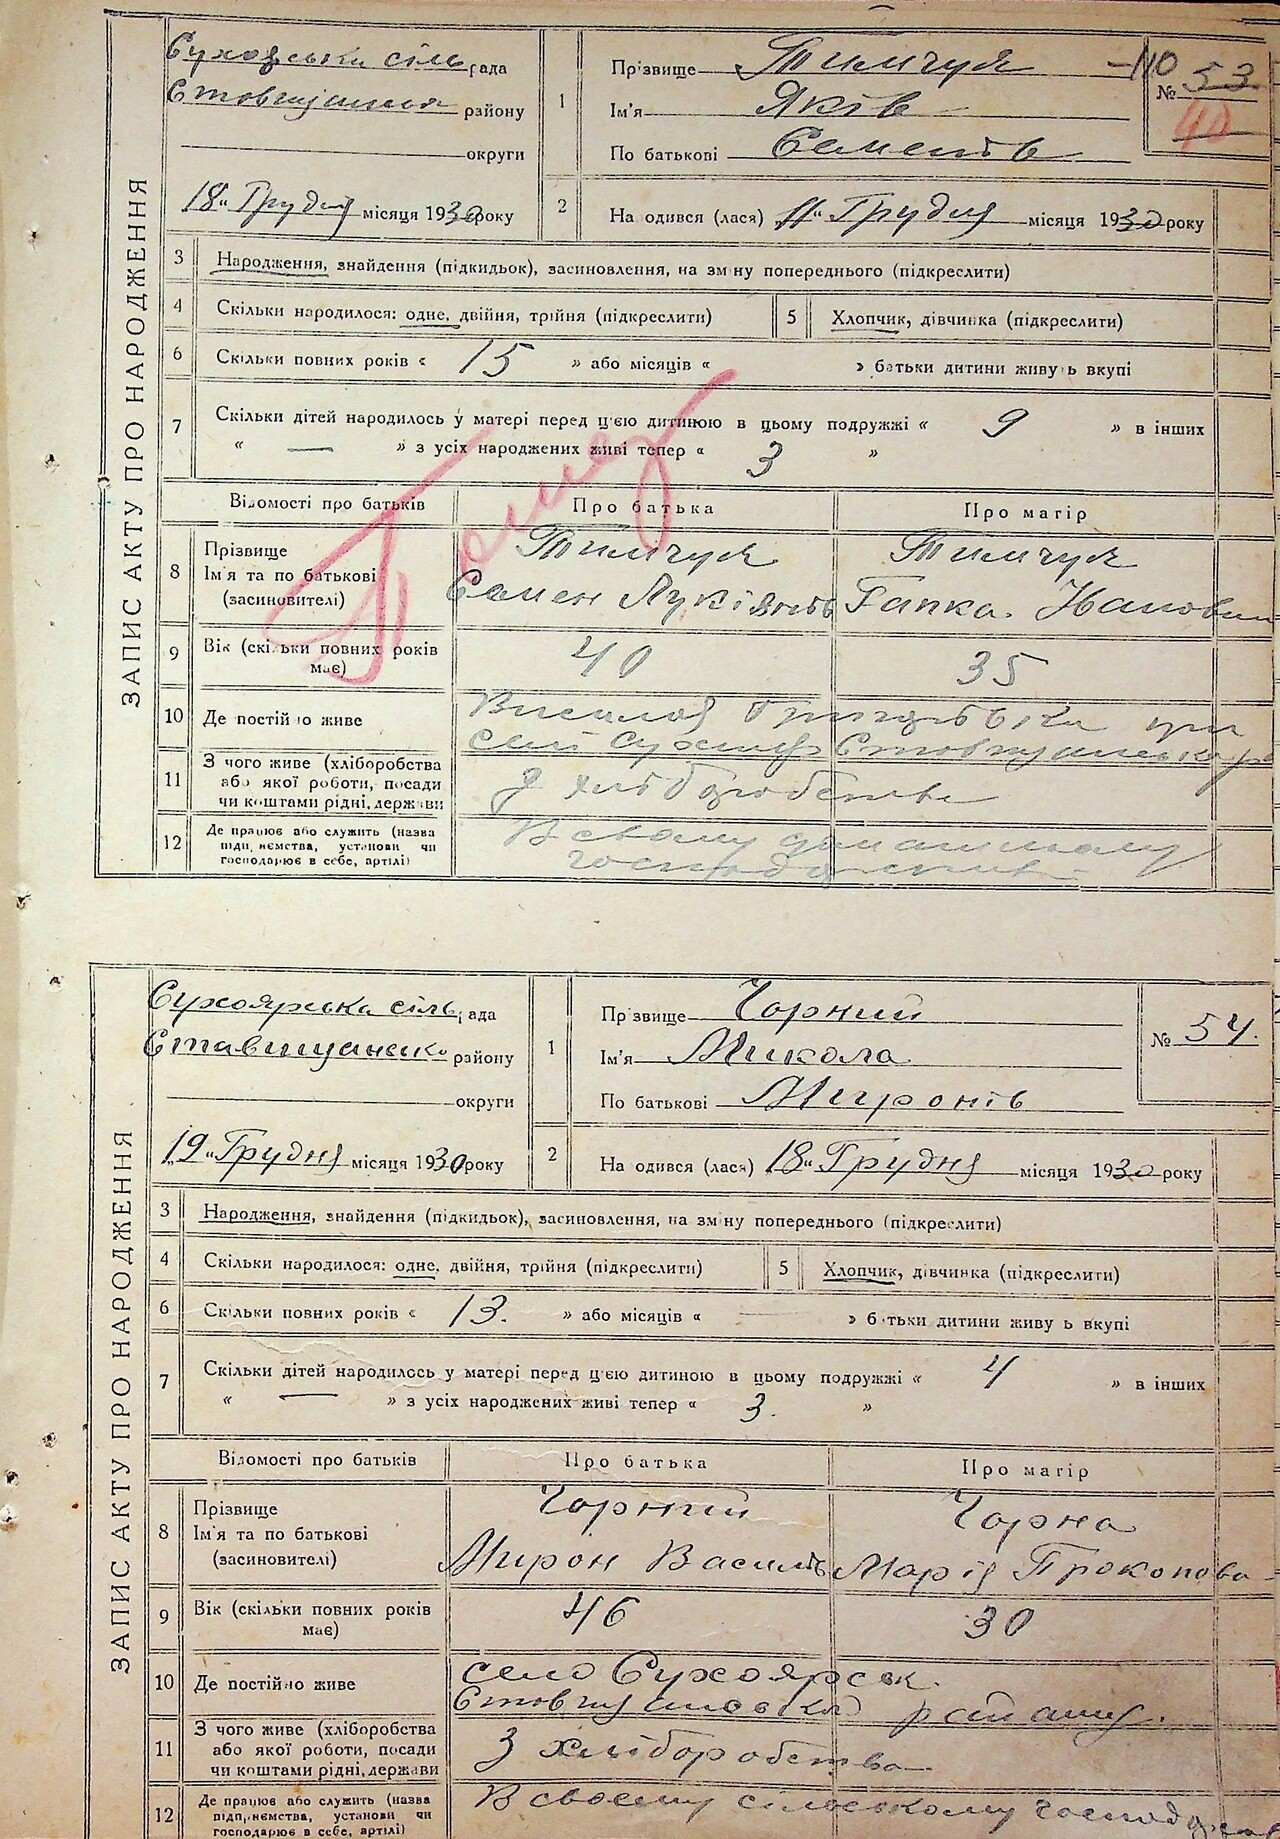 ЗАПИС АКТУ ПРО НАРОДЖЕННЯ
сіль рада
району
округи
18 " Грудня місяця 1930 року
1
Прізвище Тимчук
Ім'я Яків
По батькові Семенів
110
№ 53
40
2
На одився (лася) „11" Грудня місяця 1930 року
3 Народження, знайдення (підкидьок), засиновлення, на зміну попереднього (підкреслити)
4 Скільки народилося: одне, двійня, трійня (підкреслити)
5 Хлопчик, дівчинка (підкреслити)
6 Скільки повних років « 15 » або місяців « » батьки дитини живуть вкупі
7 Скільки дітей народилось у матері перед ц'єю дитиною в цьому подружжі « 9 » в інших
« — » з усіх народжених живі тепер « 3 »
Відомості про батьків Про батька Про матір
8 Прізвище
Ім'я та по батькові
(засиновителі)
Тимчук
Семен Лукіянів
Тимчук
Гапка
9 Вік (скільки повних років має)
40
35
10 Де постійно живе
11 З чого живе (хліборобства
або якої роботи, посади
чи коштами рідні, держави
З хліборобства
12 Де працює або служить (назва
підприємства, установи чи
господарює в себе, артілі)
В свому домашньому
господарстві
ЗАПИС АКТУ ПРО НАРОДЖЕННЯ
Сухоярська сіль рада
Ставищансько району
округи
„19" Грудня місяця 1930 року
1
Прізвище Чорний
Ім'я Микола
По батькові Миронів
№ 54.
2
На одився (лася) 18" Грудня місяця 1930 року
3 Народження, знайдення (підкидьок), засиновлення, на зміну попереднього (підкреслити)
4 Скільки народилося: одне, двійня, трійня (підкреслити)
5 Хлопчик, дівчинка (підкреслити)
6 Скільки повних років « 13. » або місяців « — » батьки дитини живуть вкупі
7 Скільки дітей народилось у матері перед ц'єю дитиною в цьому подружжі « 4 » в інших
« — » з усіх народжених живі тепер « 3. »
Відомості про батьків Про батька Про матір
8 Прізвище
Ім'я та по батькові
(засиновителі)
Чорний
Мирон Василів
Чорна
Марія Прокопова
9 Вік (скільки повних років має)
46
30
10 Де постійно живе
село Сухоярськ
району.
11 З чого живе (хліборобства
або якої роботи, посади
чи коштами рідні, держави
З хліборобства
12 Де працює або служить (назва
підприємства, установи чи
господарює в себе, артілі)
В своєму сільському